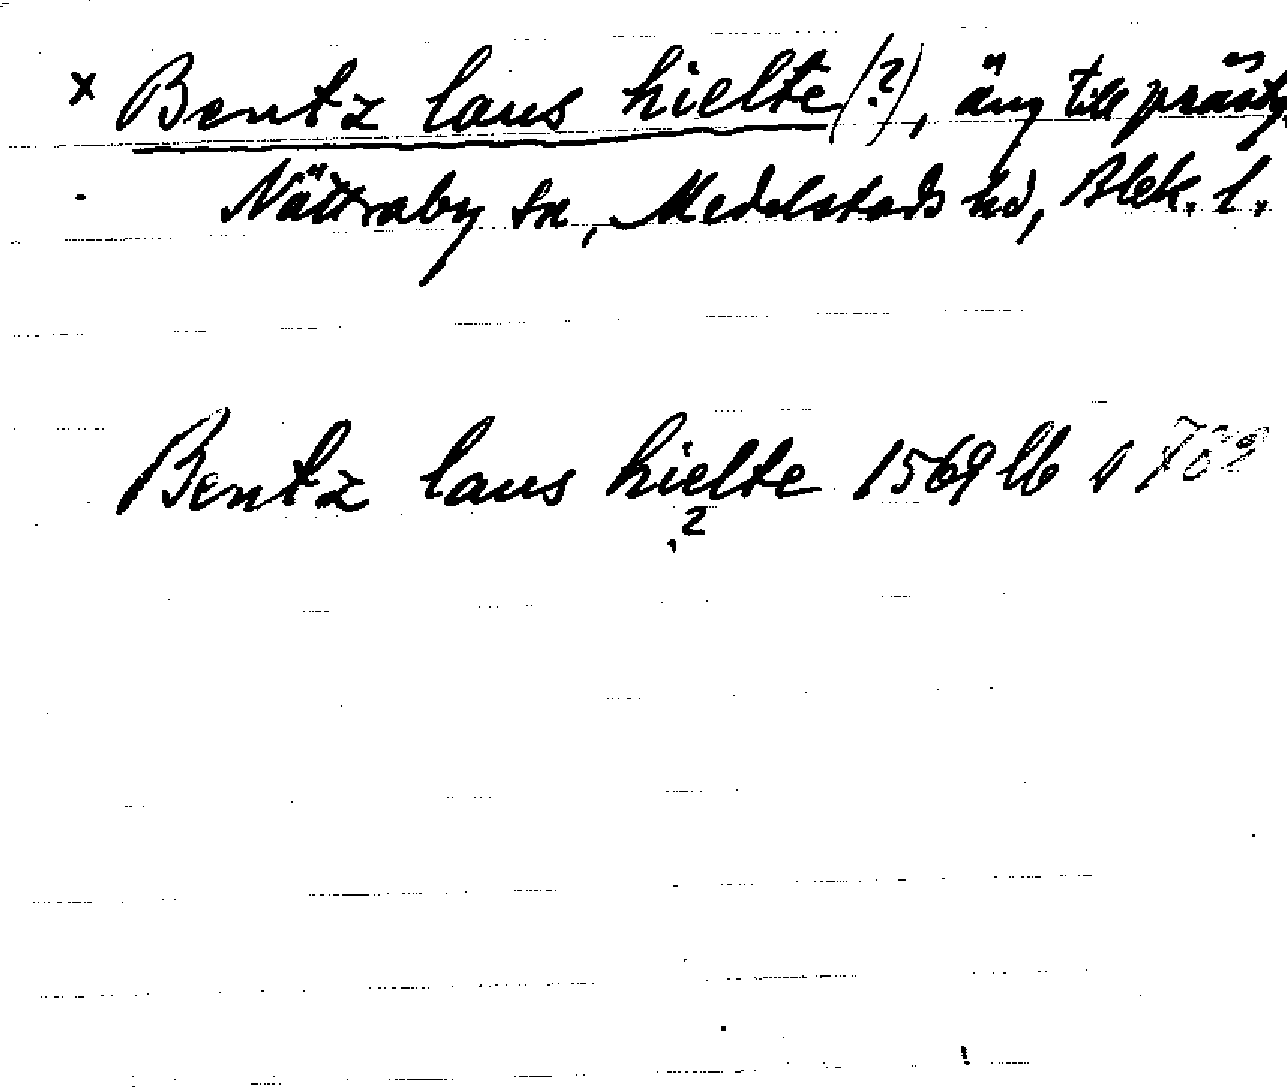 x Bentz laus hielte (?), äng till prästg.
Nättraby sn, Medelstads hd, Blek. l.
Bentz laus hielte 1569 lb s
?